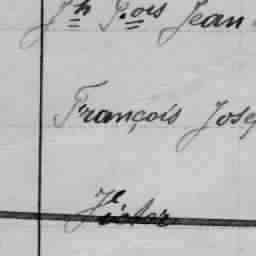 Jh F.ois Jean
François Jose
Victor